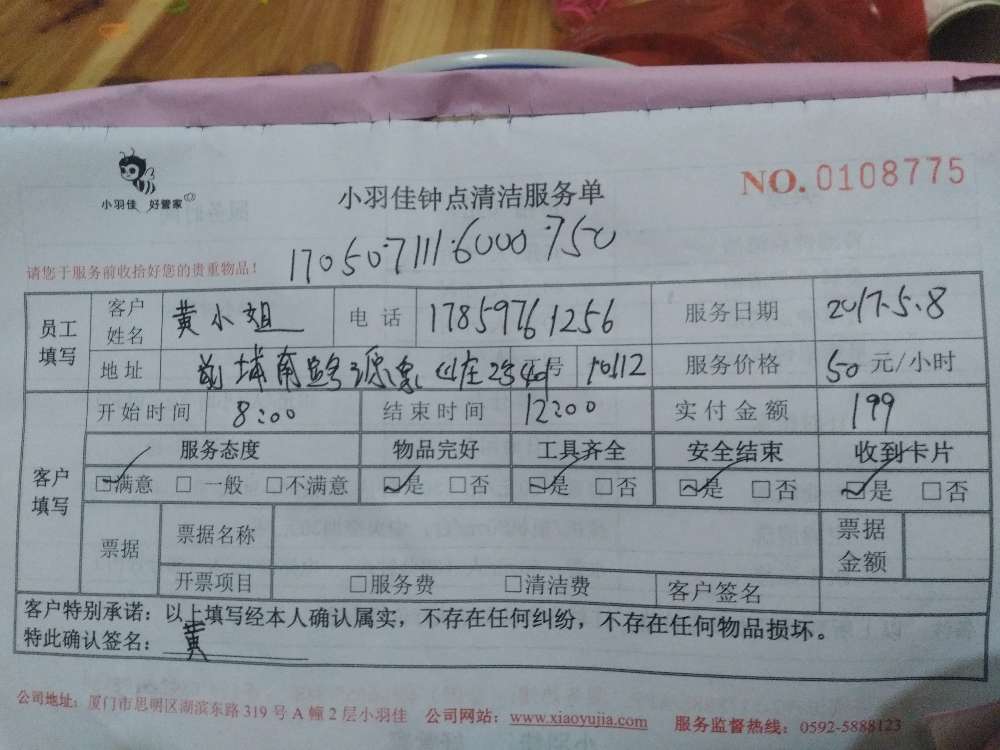 小羽佳 好管家
小羽佳钟点清洁服务单
NO. 0108775
170507111.6000.750
请您于服务前收拾好您的贵重物品!
员工填写 客户姓名 黄小姐 电话 17859761256 服务日期 2017.5.8
地址 前埔南路 号 10112 服务价格 50 元/小时
客户填写 开始时间 8:00 结束时间 12:00 实付金额 199
服务态度 物品完好 工具齐全 安全结束 收到卡片
☑满意 □一般 □不满意 ☑是 □否 ☑是 □否 ☑是 □否 ☑是 □否
票据 票据名称 票据金额
开票项目 □服务费 □清洁费 客户签名
客户特别承诺:以上填写经本人确认属实,不存在任何纠纷,不存在任何物品损坏。
特此确认签名: 黄
公司地址:厦门市思明区湖滨东路 319 号 A 幢 2 层小羽佳 公司网站:www.xiaoyujia.com 服务监督热线:0592-5888123